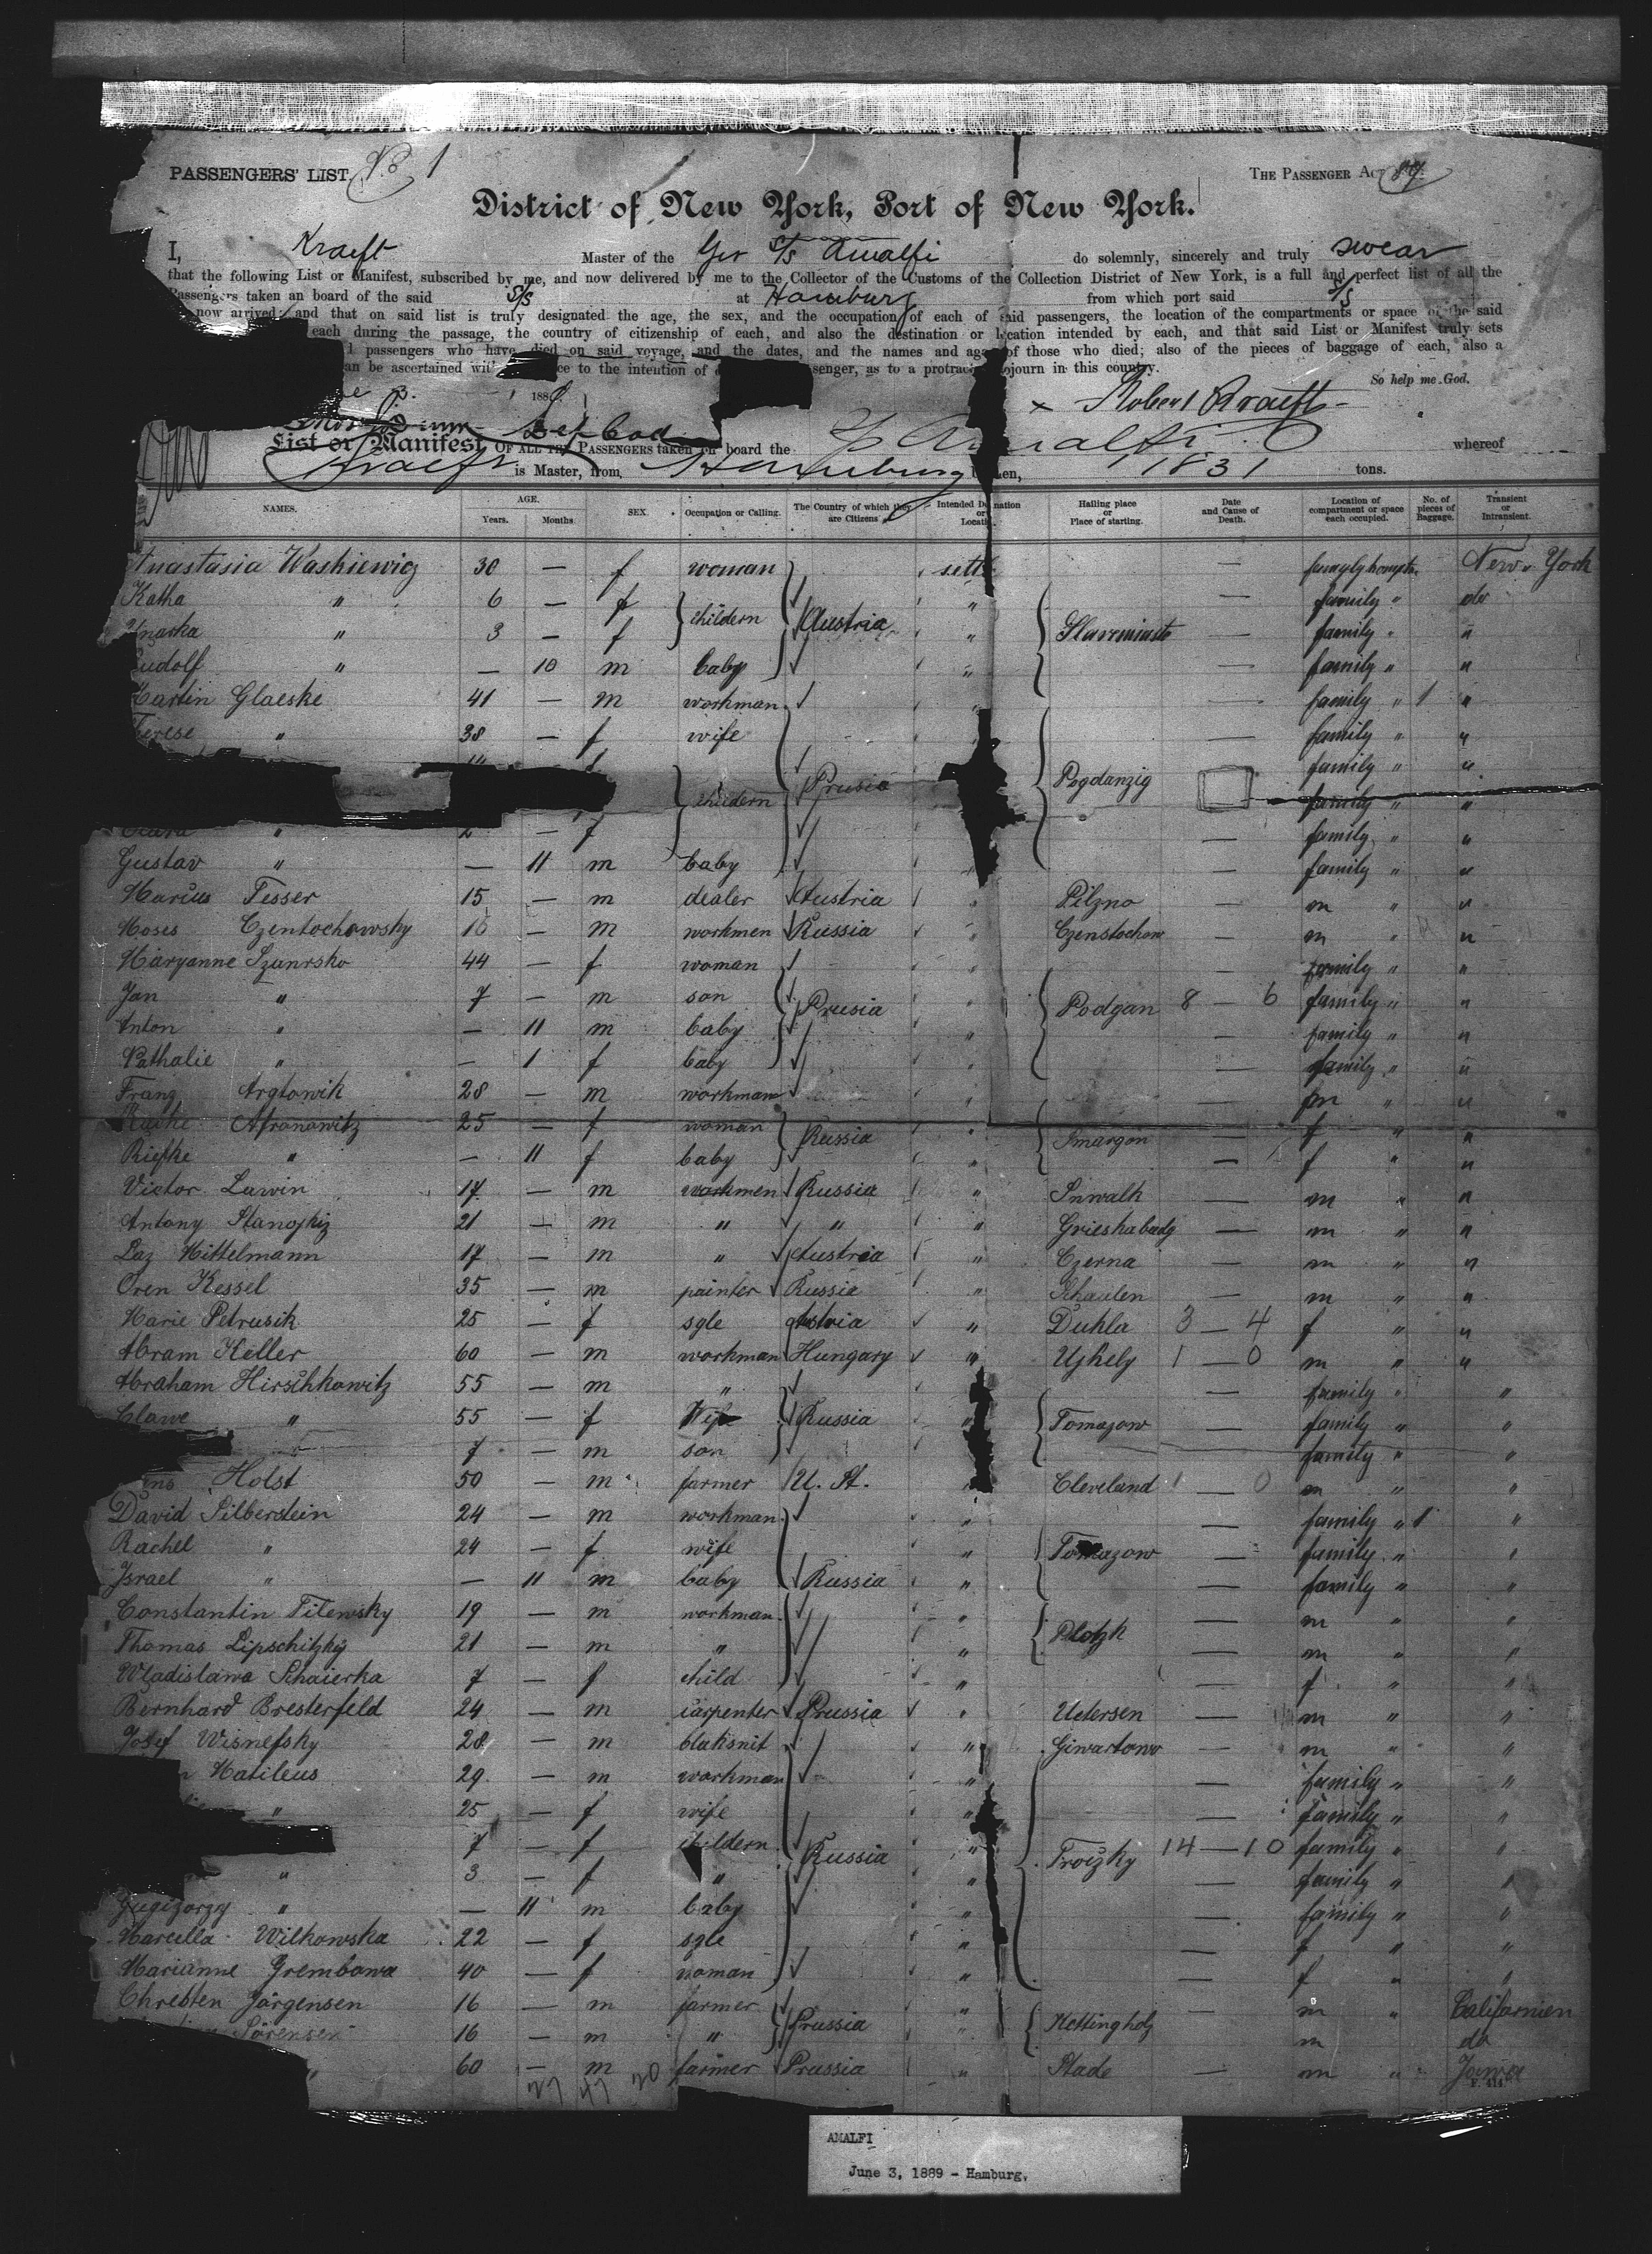 PASSENGERS' LIST. No 1 THE PASSENGER Ac 89.
District of New York, Port of New York.
I, Kraeft Master of the Ger S/s Amalfi do solemnly, sincerely and truly swear
that the following List or Manifest, subscribed by me, and now delivered by me to the Collector of the Customs of the Collection District of New York, is a full and perfect list of all the
Passengers taken an board of the said S/s at Hamburg from which port said S/s
now arrived; and that on said list is truly designated the age, the sex, and the occupation of each of said passengers, the location of the compartments or space of the said
each during the passage, the country of citizenship of each, and also the destination or location intended by each, and that said List or Manifest truly sets
passengers who have died on said voyage, and the dates, and the names and ages of those who died; also of the pieces of baggage of each, also a
an be ascertained with ce to the intention of senger, as to a protracted sojourn in this country.
So help me God.
188
x Robert Kraeft
List or Manifest OF ALL THE PASSENGERS taken on board the S/s Amalfi whereof
Kraeft is Master, from Hamburg burthen, 1831 tons.
NAMES. AGE. Years. Months. SEX. Occupation or Calling. The Country of which they are Citizens Intended Destination or Location. Hailing place or Place of starting. Date and Cause of Death. Location of compartment or space each occupied. No. of pieces of Baggage. Transient or Intransient.
Anastasia Waskiewicz 30 — f woman settl — New York
Katha " 6 — f childern Austria " — family " do
3 — f " — family " "
Rudolf " — 10 m baby " — family " "
Martin Glaeske 41 — m workman family " 1 "
Therese " 38 — f wife — family " "
family " "
childern Prusia Pogdanzig family " "
Clara " 2 — f — family " "
Gustav " — 11 m baby — family " "
Marius Tesser 15 — m dealer Austria Pilzno — m " "
Moses Czentochowsky — m workmen Russia Czenstochow — m " "
Maryanne Szunrsko 44 — f woman — family " "
Jan " 7 — m son Prusia Podgan 8 — 6 family " "
Anton " — 11 m baby — family " "
Nathalie " — 1 f baby — family " "
Franz Argtowik 28 — m workman — m " "
Afronowitz 25 — f woman Russia Smargon — f " "
Riefke " — 11 f baby " — f " "
Victor Lawin 17 — m workmen Russia " Suwalk — m " "
Antony Stanojkiz 21 — m " " " Grieskabudg — m " "
Laz Mittelmann 17 — m " Austria " Czerna — m " "
Oren Kessel 35 — m painter Russia " Schaulen — m " "
Marie Petrusik 25 — f sgle Austria " Duhla 3 — 4 f " "
Abram Keller 60 — m workman Hungary " Ujhely 1 — 0 m " "
Abraham Hirschkowitz 55 — m " — family " "
Clawe " 55 — f Wife Russia " Tomazow — family " "
7 — m son family " "
Holst 50 — m farmer U. St. Cleveland 1 — 0 m " "
David Silberstein 24 — m workman " — family " 1 "
Rachel " 24 — f wife " Tomazow — family " "
Israel " — 11 m baby Russia " — family " "
Constantin Tilewsky 19 — m workman " Plotzk — m " "
Thomas Lipschitzkÿ 21 — m " " — m " "
Wladislawa Schaierka 7 — f child " — f " "
Bernhard Bresterfeld 24 — m carpenter Prussia " Uetersen — m " "
Josef Wisnefsky 28 — m blaksmit " Giwartowo — m " "
Matileus 29 — m workman " — family " "
" 25 — f wife " — family " "
7 — f childern Russia " Troizky 14 — 10 family " "
" 3 — f " " — family " "
" — 11 m baby " — family " "
Marcella Wilkowska 22 — f sgle " — f " "
Marianne Grembowa 40 — f woman " — f " "
Chresten Jörgensen 16 — m farmer Prussia " Kettingholz — m " Californien
Sörensen 16 — m " " m do
" 60 — m farmer Prussia " Stade — m " Jowa
27 47 20
AMALFI
June 3, 1889 - Hamburg.